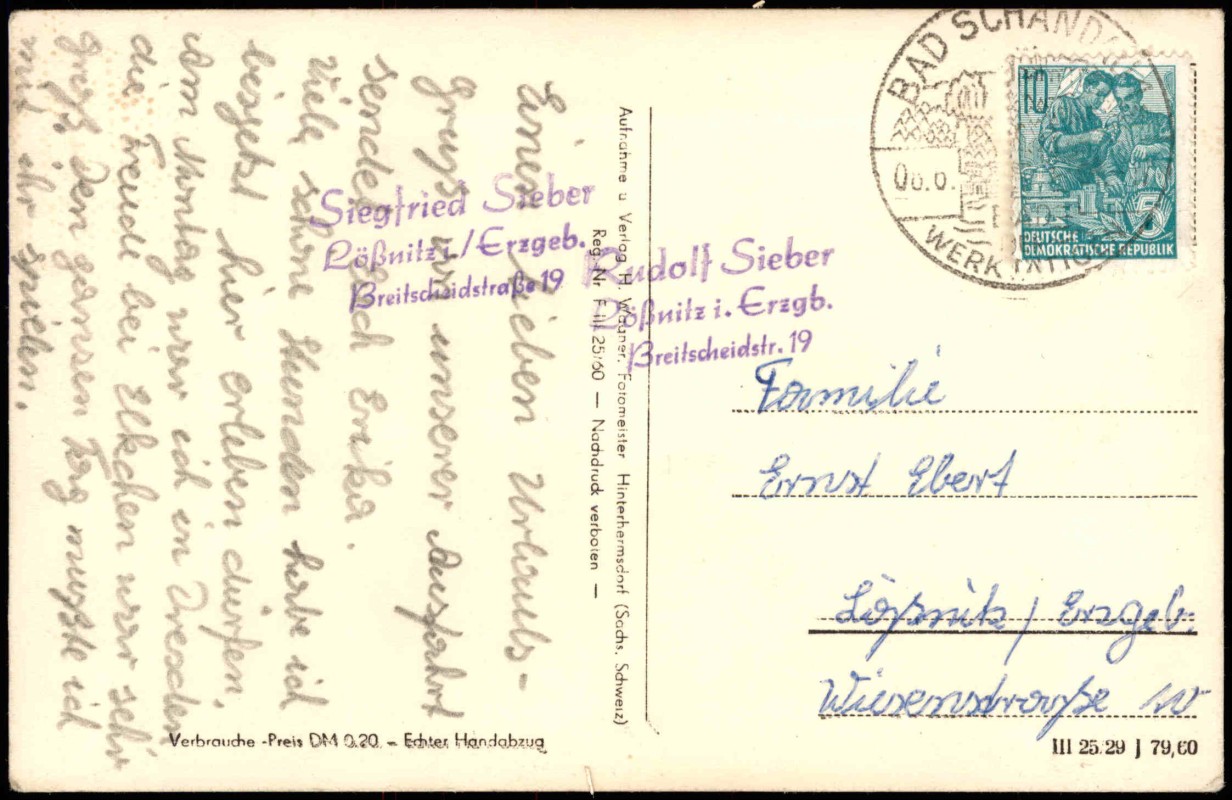 Einen lieben Urlaubs-
gruß von unserer Ausfahrt
sendet Euch Erika.
Viele schöne Stunden habe ich
beisetzt hier erleben dürfen.
Am Montag war ich in Dresden
die Freude bei Elkchen war sehr
groß. Den ganzen Tag mußte ich
mit ihr spielen.
Siegfried Sieber
Lößnitz i/Erzgeb.
Breitscheidstraße 19
Rudolf Sieber
Lößnitz i. Erzgb.
Breitscheidstr. 19
Aufnahme u Verlag H. Wagner, Fotomeister Hinterhermsdorf (Sächs. Schweiz)
Reg Nr F III 25/60 — Nachdruck verboten —
BAD SCHAND
10
5
DEUTSCHE
DEMOKRATISCHE REPUBLIK
Familie
Ernst Ebert
Lößnitz / Erzgeb.
Wiesenstraße 10
Verbrauche -Preis DM 0.20 – Echter Handabzug
III 25 29 J 79,60